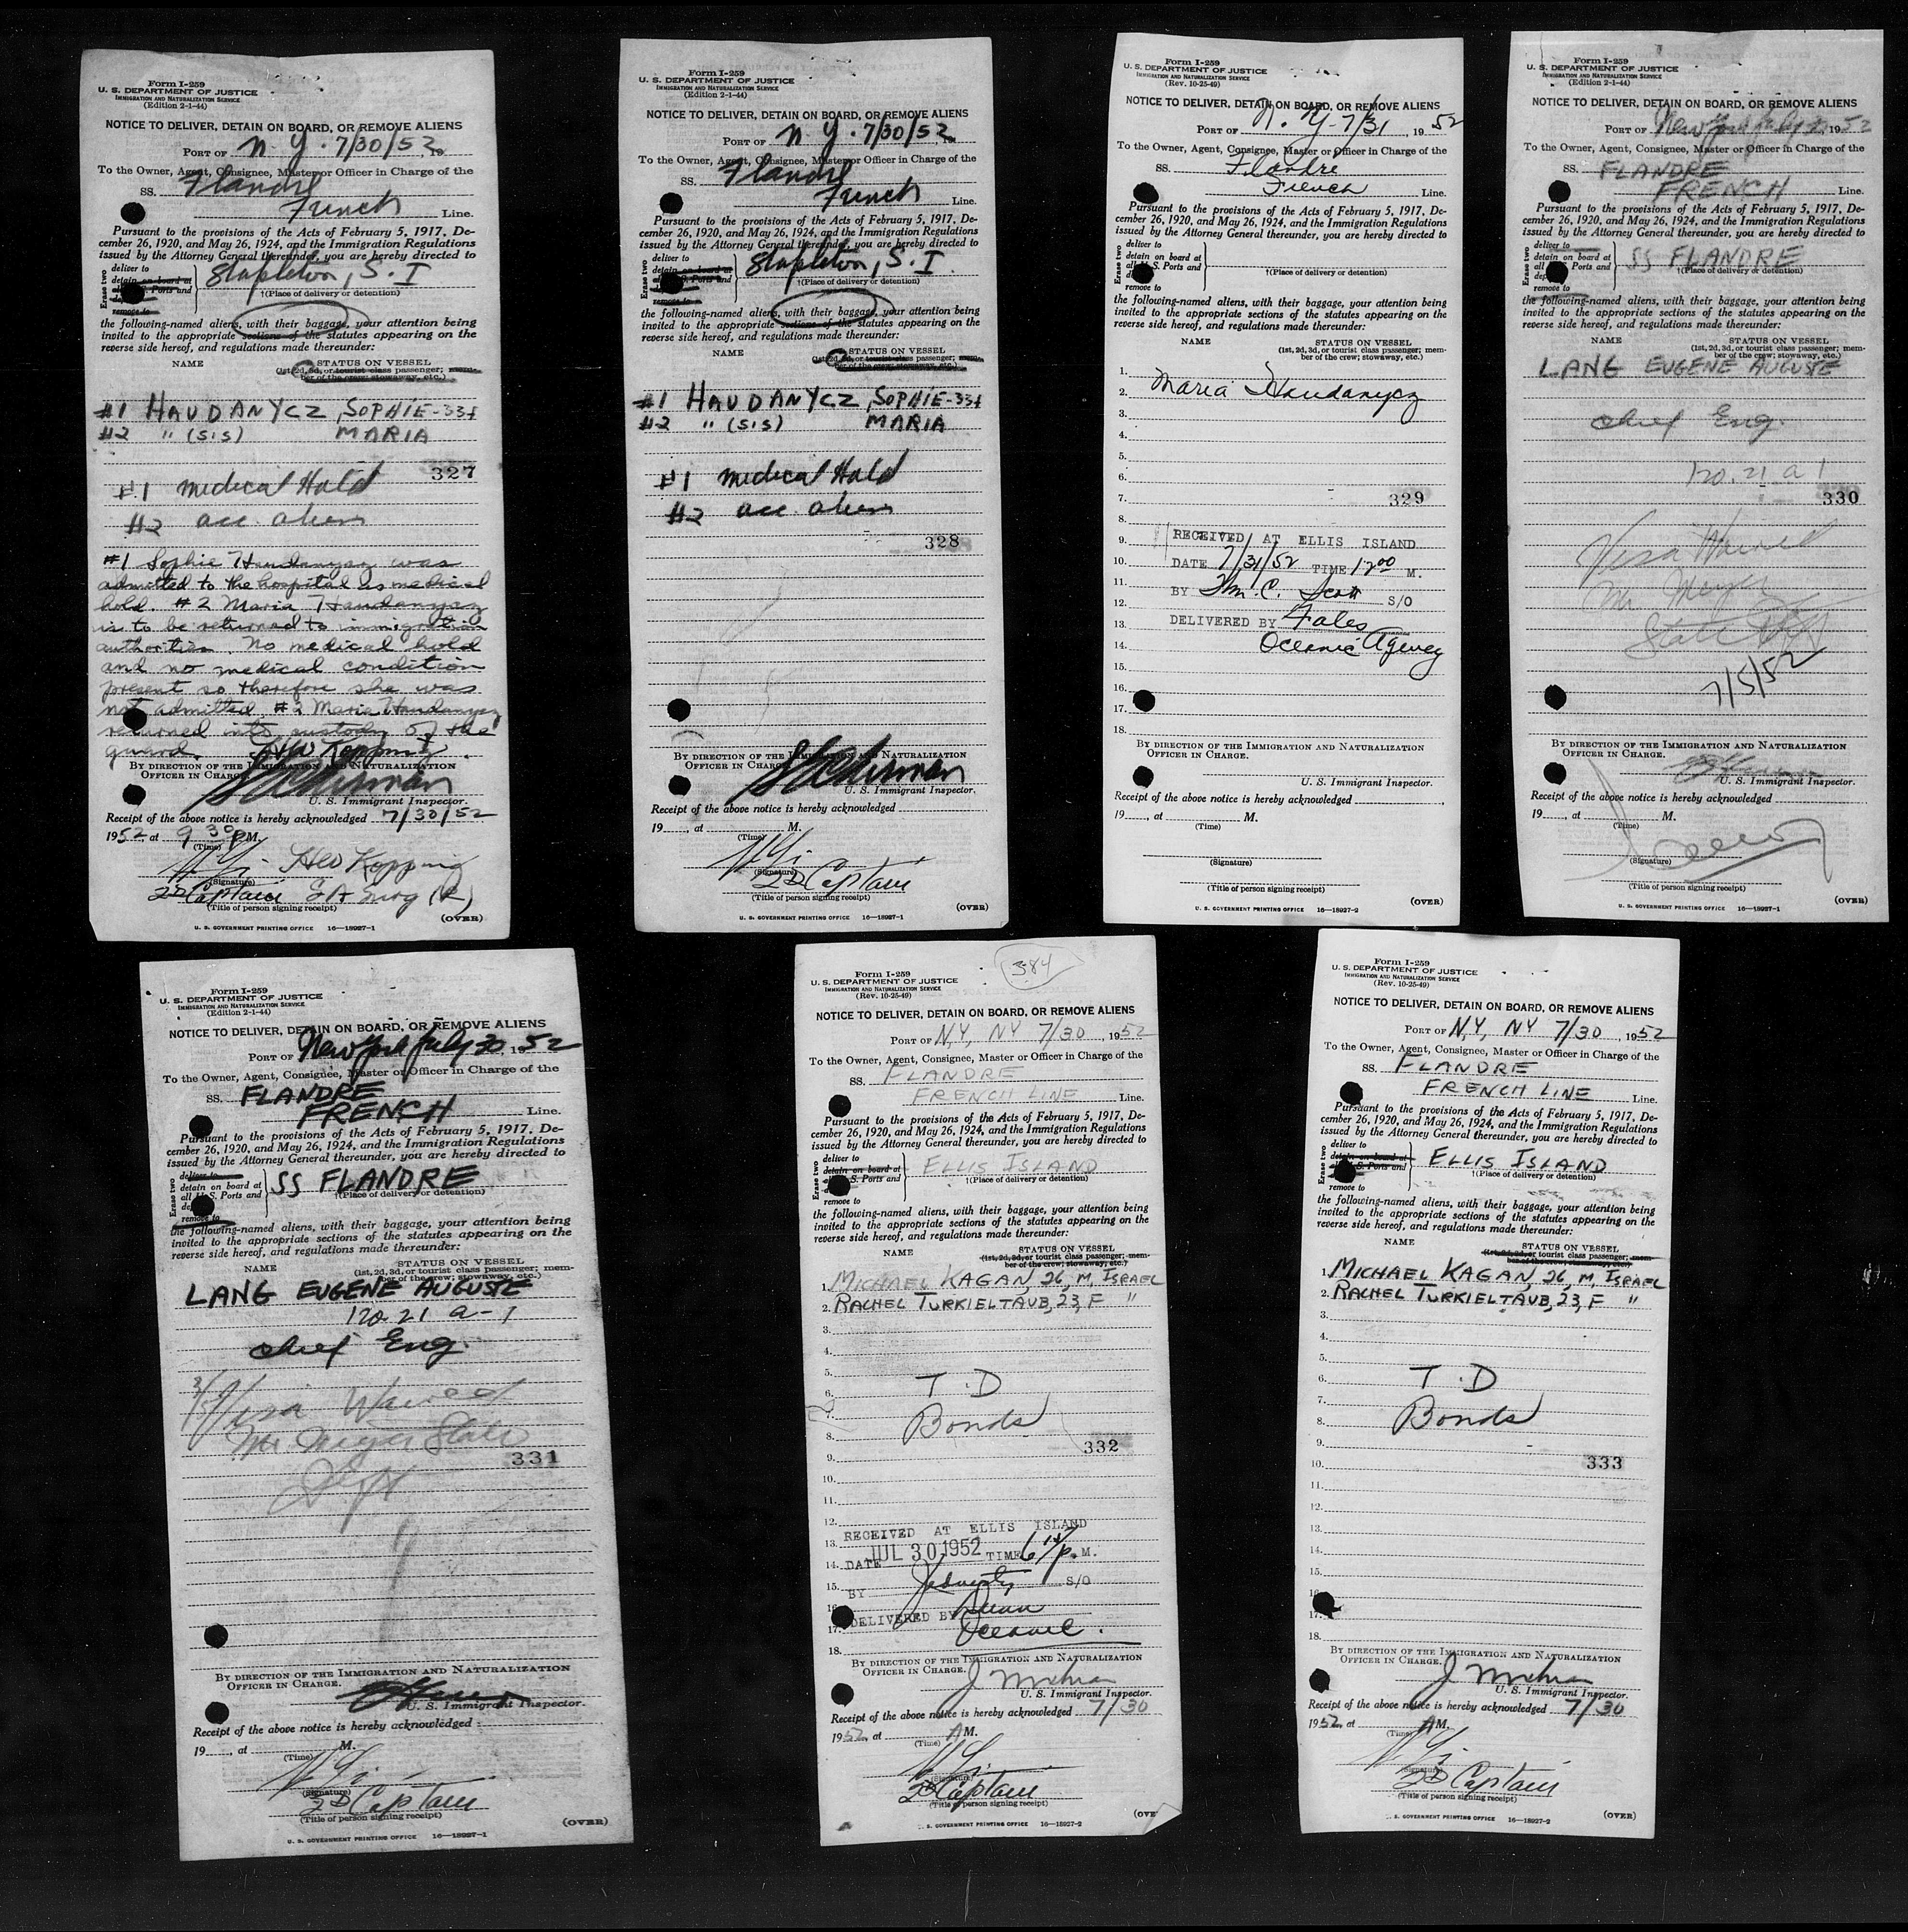 Form I-259
U. S. DEPARTMENT OF JUSTICE
IMMIGRATION AND NATURALIZATION SERVICE
(Edition 2-1-44)
NOTICE TO DELIVER, DETAIN ON BOARD, OR REMOVE ALIENS
PORT OF N. Y. 7/30/52, 19
To the Owner, Agent, Consignee, Master or Officer in Charge of the
SS. Flandre
French Line.
Pursuant to the provisions of the Acts of February 5, 1917, De-
cember 26, 1920, and May 26, 1924, and the Immigration Regulations
issued by the Attorney General thereunder, you are hereby directed to
Erase two
deliver to
detain on board at
S. Ports and
remove to
Stapleton, S. I
†(Place of delivery or detention)
the following-named aliens, with their baggage, your attention being
invited to the appropriate sections of the statutes appearing on the
reverse side hereof, and regulations made thereunder:
NAME STATUS ON VESSEL
(1st, 2d, 3d, or tourist class passenger; mem-
ber of the crew; stowaway, etc.)
#1 HAUDANYCZ, SOPHIE-33f
#2 " (SIS) MARIA
327
#1 medical Hold
#2 acc. alien
#1 Sophie Haudanycz was
admitted to the hospital as medical
hold. #2 Maria Haudanycz
is to be returned to immigration
authorities. No medical hold
and no medical condition
present so therefore she was
not admitted. #2 Maria Haudanycz
returned into custody of the
guard.
BY DIRECTION OF THE IMMIGRATION AND NATURALIZATION
OFFICER IN CHARGE.
U. S. Immigrant Inspector.
Receipt of the above notice is hereby acknowledged 7/30/52
1952 at 9 30 P.M.
(Time)
(Signature)
2D Captain
(Title of person signing receipt)
(OVER)
U. S. GOVERNMENT PRINTING OFFICE 16—18927-1
Form I-259
U. S. DEPARTMENT OF JUSTICE
IMMIGRATION AND NATURALIZATION SERVICE
(Edition 2-1-44)
NOTICE TO DELIVER, DETAIN ON BOARD, OR REMOVE ALIENS
PORT OF N. Y. 7/30/52, 19
To the Owner, Agent, Consignee, Master or Officer in Charge of the
SS. Flandre
French Line.
Pursuant to the provisions of the Acts of February 5, 1917, De-
cember 26, 1920, and May 26, 1924, and the Immigration Regulations
issued by the Attorney General thereunder, you are hereby directed to
Erase two
deliver to
detain on board at
S. Ports and
remove to
Stapleton, S. I.
†(Place of delivery or detention)
the following-named aliens, with their baggage, your attention being
invited to the appropriate sections of the statutes appearing on the
reverse side hereof, and regulations made thereunder:
NAME STATUS ON VESSEL
(1st, 2d, 3d, or tourist class passenger; mem-
ber of the crew; stowaway, etc.)
#1 HAUDANYCZ, SOPHIE-33f
#2 " (SIS) MARIA
#1 medical Hold
#2 acc. alien
328
BY DIRECTION OF THE IMMIGRATION AND NATURALIZATION
OFFICER IN CHARGE.
U. S. Immigrant Inspector.
Receipt of the above notice is hereby acknowledged
19 , at M.
(Time)
(Signature)
2D Captain
(Title of person signing receipt)
(OVER)
U. S. GOVERNMENT PRINTING OFFICE 16—18927-1
Form I-259
U. S. DEPARTMENT OF JUSTICE
IMMIGRATION AND NATURALIZATION SERVICE
(Rev. 10-25-49)
NOTICE TO DELIVER, DETAIN ON BOARD, OR REMOVE ALIENS
PORT OF N. Y. 7/31, 1952
To the Owner, Agent, Consignee, Master or Officer in Charge of the
SS. Flandre
French Line.
Pursuant to the provisions of the Acts of February 5, 1917, De-
cember 26, 1920, and May 26, 1924, and the Immigration Regulations
issued by the Attorney General thereunder, you are hereby directed to
Erase two
deliver to
detain on board at
all S. Ports and
remove to
†(Place of delivery or detention)
the following-named aliens, with their baggage, your attention being
invited to the appropriate sections of the statutes appearing on the
reverse side hereof, and regulations made thereunder:
NAME STATUS ON VESSEL
(1st, 2d, 3d, or tourist class passenger; mem-
ber of the crew; stowaway, etc.)
1.
2. Maria Haudanycz
3.
4.
5.
6.
7. 329
8.
9. RECEIVED AT ELLIS ISLAND
10. DATE 7/31/52 TIME 12 00 M.
11. BY Wm. C. Scott S/O
12.
13. DELIVERED BY Fales
14. Oceanic Agency
15.
16.
17.
18.
BY DIRECTION OF THE IMMIGRATION AND NATURALIZATION
OFFICER IN CHARGE.
U. S. Immigrant Inspector.
Receipt of the above notice is hereby acknowledged
19 , at M.
(Time)
(Signature)
(Title of person signing receipt)
(OVER)
U. S. GOVERNMENT PRINTING OFFICE 16—18927-2
Form I-259
U. S. DEPARTMENT OF JUSTICE
IMMIGRATION AND NATURALIZATION SERVICE
(Edition 2-1-44)
NOTICE TO DELIVER, DETAIN ON BOARD, OR REMOVE ALIENS
PORT OF New York July 30, 1952
To the Owner, Agent, Consignee, Master or Officer in Charge of the
SS. FLANDRE
FRENCH Line.
Pursuant to the provisions of the Acts of February 5, 1917, De-
cember 26, 1920, and May 26, 1924, and the Immigration Regulations
issued by the Attorney General thereunder, you are hereby directed to
Erase two
deliver to
detain on board at
all Ports and
remove to
SS FLANDRE
†(Place of delivery or detention)
the following-named aliens, with their baggage, your attention being
invited to the appropriate sections of the statutes appearing on the
reverse side hereof, and regulations made thereunder:
NAME STATUS ON VESSEL
(1st, 2d, 3d, or tourist class passenger; mem-
ber of the crew; stowaway, etc.)
LANG EUGENE AUGUSTE
chief Eng.
120.21 a 1
330
Visa Waived
Mr. Meyer
State Dept
7/5/52
BY DIRECTION OF THE IMMIGRATION AND NATURALIZATION
OFFICER IN CHARGE.
U. S. Immigrant Inspector.
Receipt of the above notice is hereby acknowledged
19 , at M.
(Time)
(Signature)
(Title of person signing receipt)
(OVER)
U. S. GOVERNMENT PRINTING OFFICE 16—18927-1
Form I-259
U. S. DEPARTMENT OF JUSTICE
IMMIGRATION AND NATURALIZATION SERVICE
(Edition 2-1-44)
NOTICE TO DELIVER, DETAIN ON BOARD, OR REMOVE ALIENS
PORT OF New York July 30, 1952
To the Owner, Agent, Consignee, Master or Officer in Charge of the
SS. FLANDRE
FRENCH Line.
Pursuant to the provisions of the Acts of February 5, 1917, De-
cember 26, 1920, and May 26, 1924, and the Immigration Regulations
issued by the Attorney General thereunder, you are hereby directed to
Erase two
deliver to
detain on board at
all S. Ports and
remove to
SS FLANDRE
†(Place of delivery or detention)
the following-named aliens, with their baggage, your attention being
invited to the appropriate sections of the statutes appearing on the
reverse side hereof, and regulations made thereunder:
NAME STATUS ON VESSEL
(1st, 2d, 3d, or tourist class passenger; mem-
ber of the crew; stowaway, etc.)
LANG EUGENE AUGUSTE
120.21 a-1
chief Eng.
Visa Waived
Mr Meyer State
331
Dept
BY DIRECTION OF THE IMMIGRATION AND NATURALIZATION
OFFICER IN CHARGE.
U. S. Immigrant Inspector.
Receipt of the above notice is hereby acknowledged
19 , at M.
(Time)
(Signature)
2D Captain
(Title of person signing receipt)
(OVER)
U. S. GOVERNMENT PRINTING OFFICE 16—18927-1
384
Form I-259
U. S. DEPARTMENT OF JUSTICE
IMMIGRATION AND NATURALIZATION SERVICE
(Rev. 10-25-49)
NOTICE TO DELIVER, DETAIN ON BOARD, OR REMOVE ALIENS
PORT OF N.Y, NY 7/30, 1952
To the Owner, Agent, Consignee, Master or Officer in Charge of the
SS. FLANDRE
FRENCH LINE Line.
Pursuant to the provisions of the Acts of February 5, 1917, De-
cember 26, 1920, and May 26, 1924, and the Immigration Regulations
issued by the Attorney General thereunder, you are hereby directed to
Erase two
deliver to
detain on board at
all S. Ports and
remove to
ELLIS ISLAND
†(Place of delivery or detention)
the following-named aliens, with their baggage, your attention being
invited to the appropriate sections of the statutes appearing on the
reverse side hereof, and regulations made thereunder:
NAME STATUS ON VESSEL
(1st, 2d, 3d, or tourist class passenger; mem-
ber of the crew; stowaway, etc.)
1. MICHAEL KAGAN, 26, M, ISRAEL
2. RACHEL TURKIELTAUB, 23, F "
3.
4.
5.
6. T.D
7.
8. Bonds
9. 332
10.
11.
12.
RECEIVED AT ELLIS ISLAND
13.
14. DATE JUL 30 1952 TIME 6 15 P.M.
15. BY S/O
16.
17. DELIVERED BY
Oceanic.
18.
BY DIRECTION OF THE IMMIGRATION AND NATURALIZATION
OFFICER IN CHARGE.
U. S. Immigrant Inspector.
Receipt of the above notice is hereby acknowledged 7/30
1952, at AM.
(Time)
(Signature)
2D Captain
(Title of person signing receipt)
(OVE
U. S. GOVERNMENT PRINTING OFFICE 16—18927-2
Form I-259
U. S. DEPARTMENT OF JUSTICE
IMMIGRATION AND NATURALIZATION SERVICE
(Rev. 10-25-49)
NOTICE TO DELIVER, DETAIN ON BOARD, OR REMOVE ALIENS
PORT OF N.Y, NY 7/30 1952
To the Owner, Agent, Consignee, Master or Officer in Charge of the
SS. FLANDRE
FRENCH LINE Line.
Pursuant to the provisions of the Acts of February 5, 1917, De-
cember 26, 1920, and May 26, 1924, and the Immigration Regulations
issued by the Attorney General thereunder, you are hereby directed to
Erase two
deliver to
detain on board at
S. Ports and
remove to
ELLIS ISLAND
†(Place of delivery or detention)
the following-named aliens, with their baggage, your attention being
invited to the appropriate sections of the statutes appearing on the
reverse side hereof, and regulations made thereunder:
NAME STATUS ON VESSEL
(1st, 2d, 3d, or tourist class passenger; mem-
ber of the crew; stowaway, etc.)
1. MICHAEL KAGAN 26, M, ISRAEL
2. RACHEL TURKIELTAUB, 23, F "
3.
4.
5.
6. T.D
7.
8. Bonds
9.
10. 333
11.
12.
13.
14.
15.
16.
17.
18.
BY DIRECTION OF THE IMMIGRATION AND NATURALIZATION
OFFICER IN CHARGE.
U. S. Immigrant Inspector.
Receipt of the above notice is hereby acknowledged 7/30
1952, at AM.
(Time)
(Signature)
2D Captain
(Title of person signing receipt)
(OVER)
U. S. GOVERNMENT PRINTING OFFICE 16—18927-2